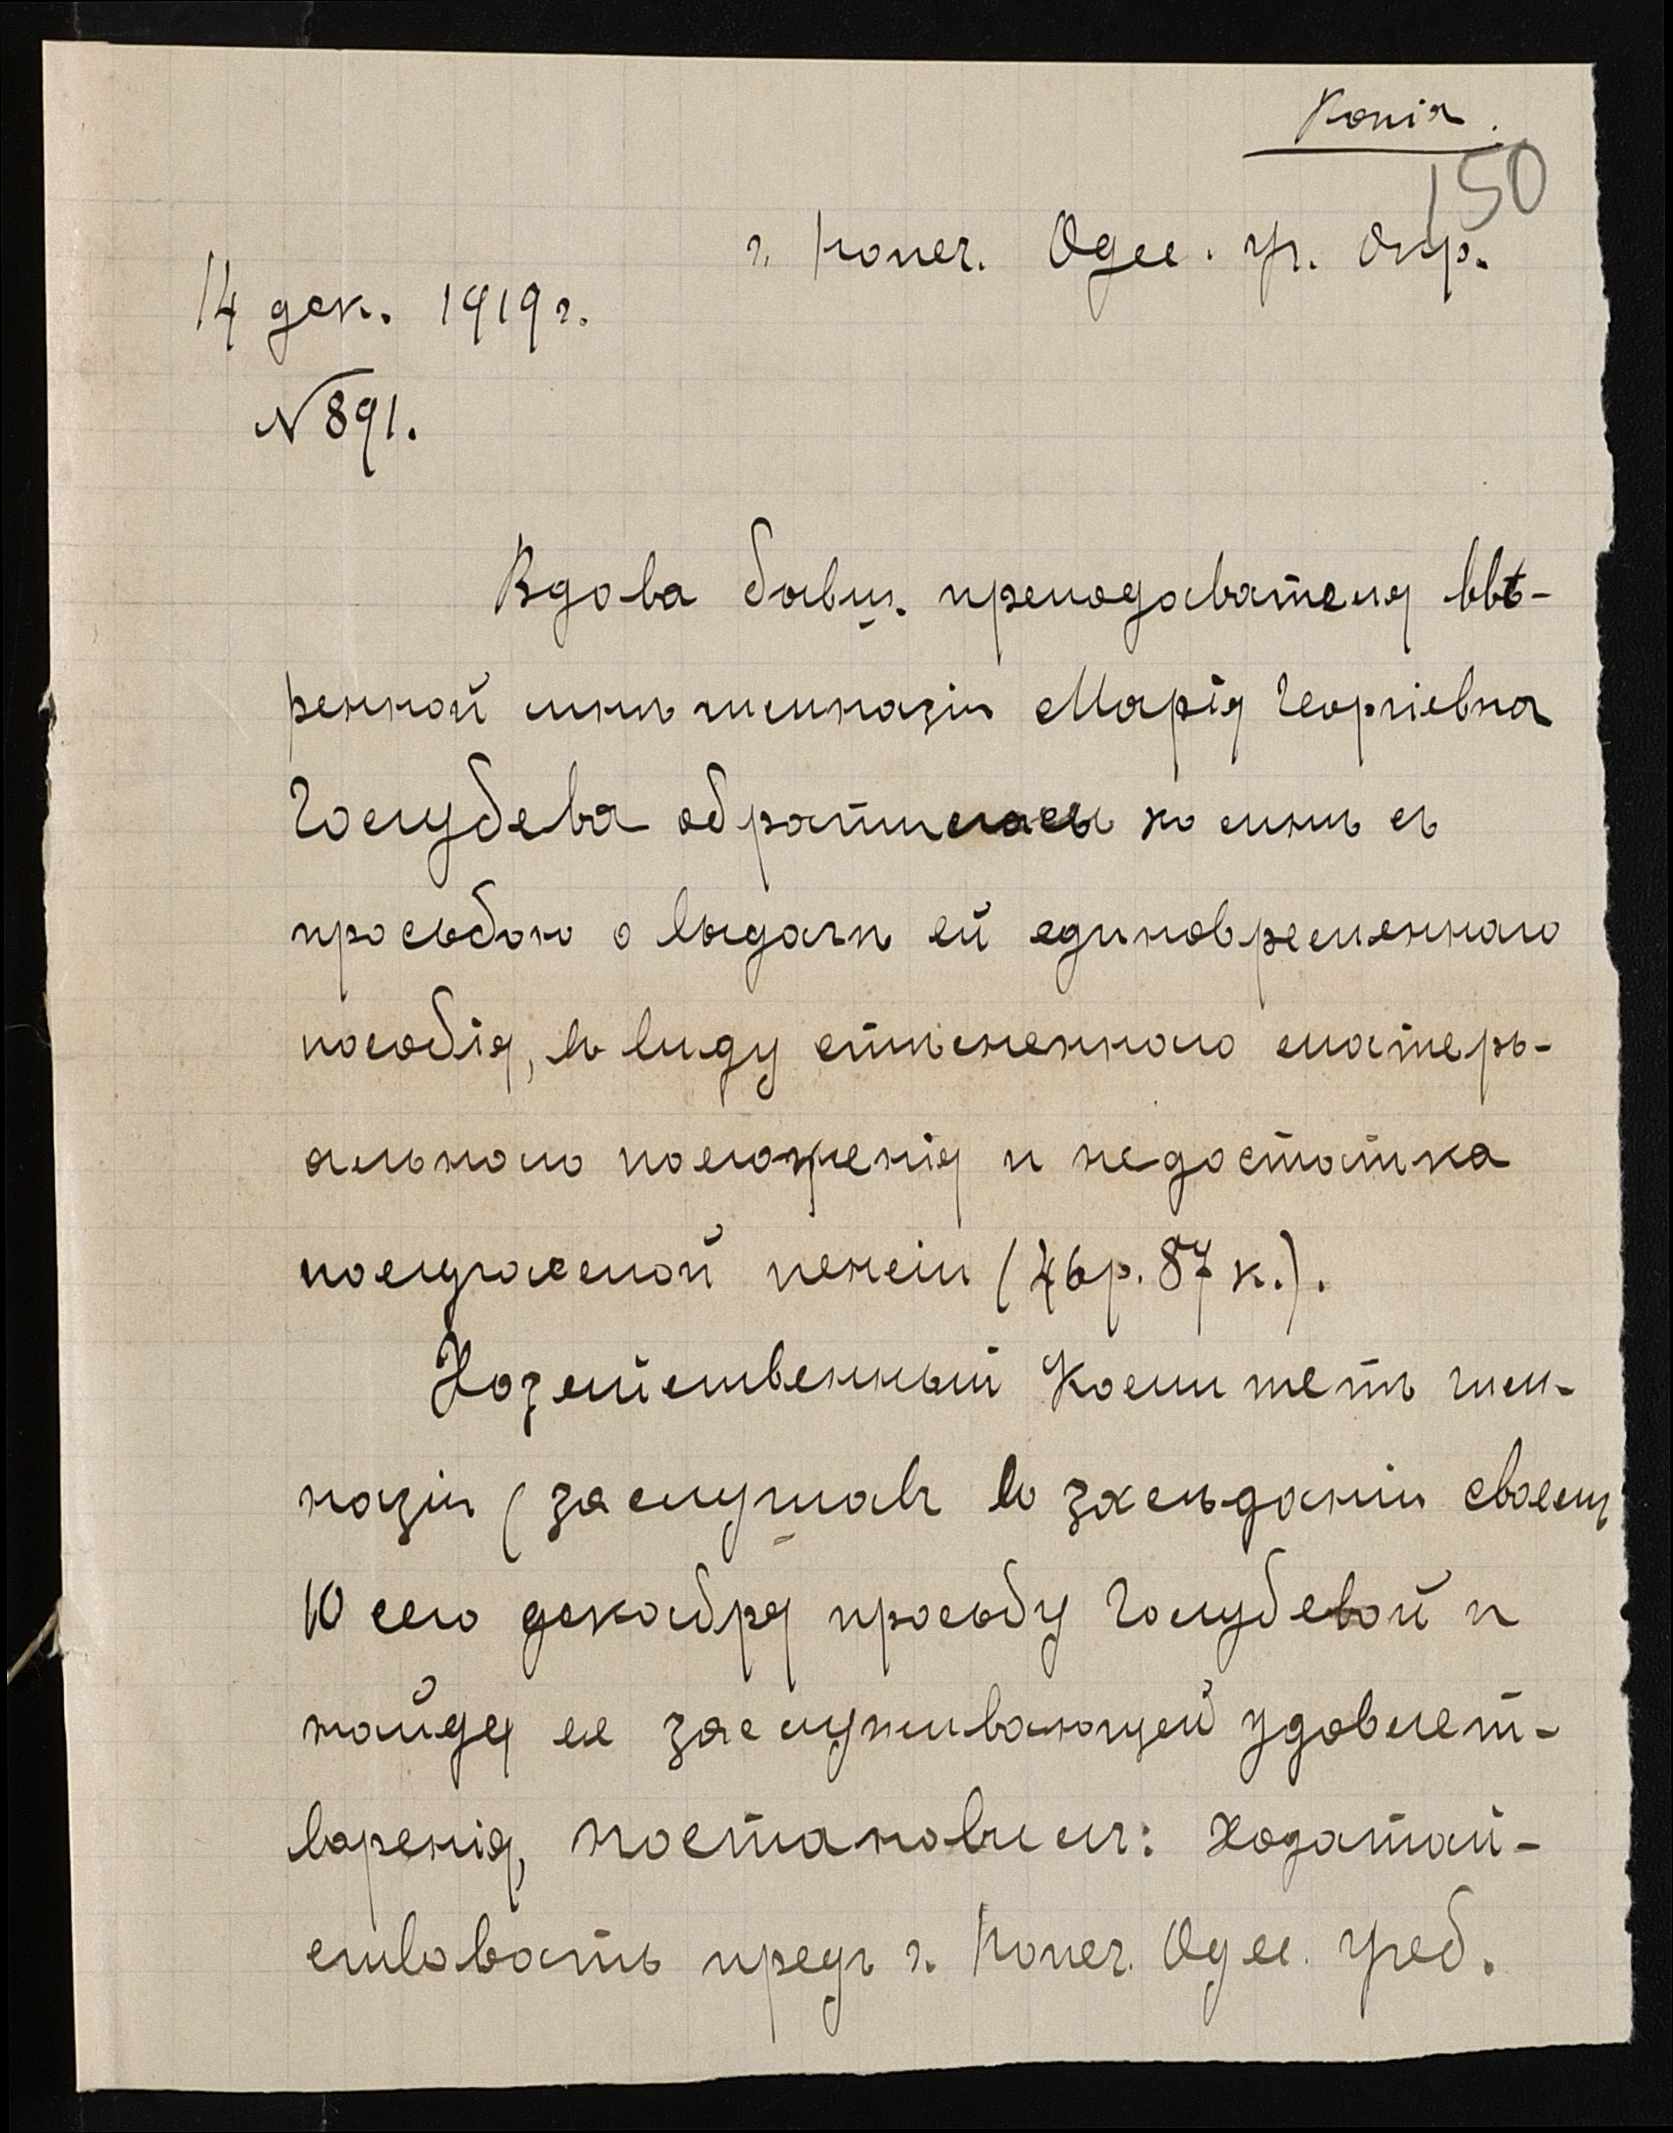 Копія.
150
г. Попеч. Одес. уч. Окр.
14 дек. 1919 г.
№ 891.
Вдова бывш. преподавателя ввѣ-
ренной мнѣ гимназіи Марія Георгіевна
Голубева обратилась ко мнѣ съ
просьбою о выдачѣ ей единовременнаго
пособія, въ виду стѣсненнаго матерь-
альнаго положенія и недостатка
получаемой пенсіи (46 р. 87 к.).
Хозяйственный Комитетъ гим-
назіи, заслушавъ въ засѣданіи своемъ
10 сего декабря просьбу Голубевой и
найдя ее заслуживающей удовлет-
воренія, постановилъ: ходатай-
ствовать предъ г. Попеч. Одес. Учеб.